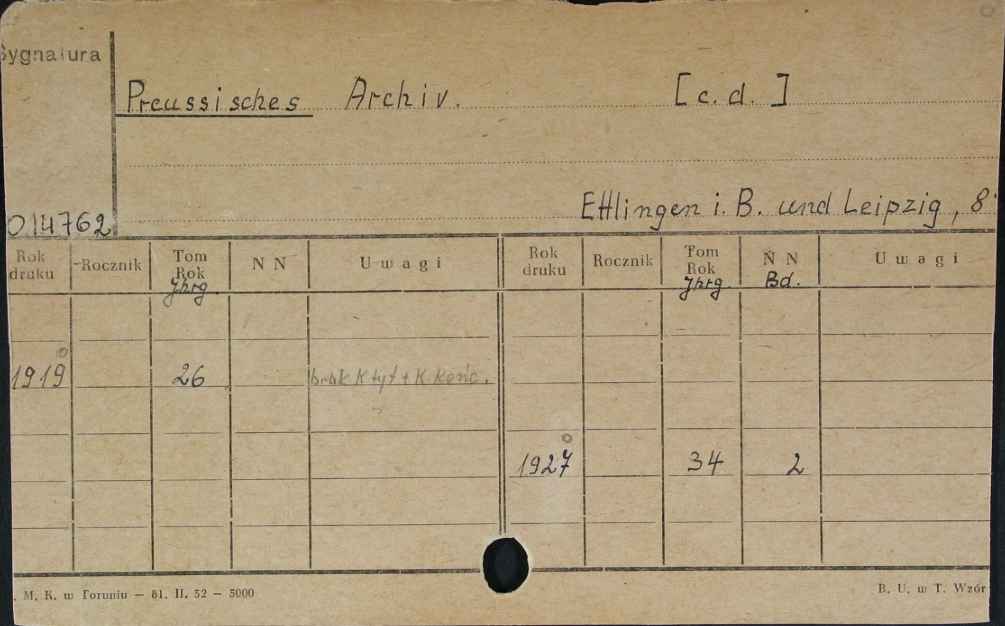 Sygnatura
Preussisches Archiv. [c.d.]
014762
Ettlingen i. B. und Leipzig, 8°
Rok druku Rocznik Tom Rok Jhrg N N Uwagi Rok druku Rocznik Tom Rok Jhrg N N Bd. Uwagi
1919 26 brak K tyt + K końc.
1927 34 2
. M. K. w Toruniu — 81. II. 52 — 5000 B. U. w T. Wzór